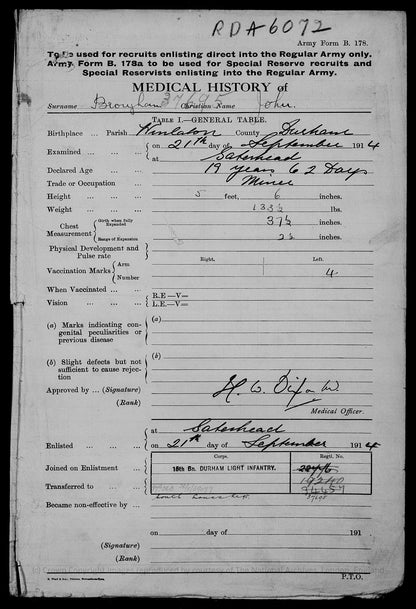 RDA6072
Army Form B. 178.
To be used for recruits enlisting direct into the Regular Army only.
Army Form B. 178a to be used for Special Reserve recruits and
Special Reservists enlisting into the Regular Army.
MEDICAL HISTORY of
37695
Surname Brougham Christian Name John
TABLE I.—GENERAL TABLE.
Birthplace ... Parish Winlaton County Durham
Examined ... on 21th day of September 1914
at Gateshead
Declared Age ... 19 years 62 Days
Trade or Occupation Miner
Height ... 5 feet, 6 inches.
Weight ... 133½ lbs.
Chest Measurement Girth when fully Expanded 37½ inches.
Range of Expansion 2½ inches.
Physical Development and Pulse rate
Vaccination Marks Arm Right. Left.
Number 4
When Vaccinated ...
Vision ... R.E.—V=
L.E.—V=
(a) Marks indicating congenital peculiarities or previous disease (a)
(b) Slight defects but not sufficient to cause rejection (b)
Approved by ... (Signature) H. W.
(Rank) Medical Officer.
at Gateshead
Enlisted ... on 21th day of September 1914
Corps. Regtl. No.
Joined on Enlistment ... 15th Bn. DURHAM LIGHT INFANTRY.
19240
Transferred to ... 94457
37695
Became non-effective by ...
on day of 191
(Signature)
(Rank)
P.T.O.